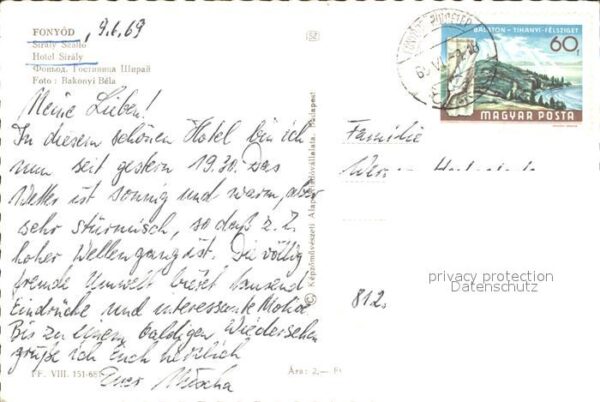 FONYÓD, 9.6.69
Sirály Szálló
Hotel Sirály
Фоньод. Гостиница Ширай
Foto: Bakonyi Béla
Meine Lieben!
In diesem schönen Hotel bin ich
nun seit gestern 19.30. Das
Wetter ist sonnig und warm, aber
sehr stürmisch, so daß z. Z.
hoher Wellengang ist. Die völlig
fremde Umwelt bietet tausend
Eindrücke und interessante Motive
Bis zu einem baldigen Wiedersehen
grüße ich Euch herzlich
Euer Mischa
FF. VIII. 151-681
Ára: 2,— Ft
© Képzőművészeti Alap Kiadóvállalata, Budapest
BALATON - TIHANYI-FÉLSZIGET
60f
MAGYAR POSTA
Familie
812
privacy protection
Datenschutz